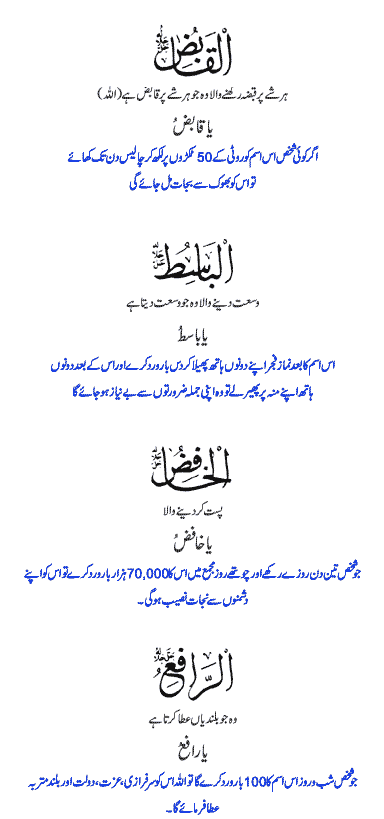 اَلْقَابِضُ جل جلالہ
ہر شے پر قبضہ رکھنے والا وہ جو ہر شے پر قابض ہے (اللہ)
یا قابضُ
اگر کوئی شخص اس اسم کو روٹی کے 50 ٹکڑوں پر لکھ کر چالیس دن تک کھائے
تو اس کو بھوک سے نجات مل جائے گی
اَلْبَاسِطُ جل جلالہ
وسعت دینے والا وہ جو وسعت دیتا ہے
یا باسطُ
اس اسم کا بعد نماز فجر اپنے دونوں ہاتھ پھیلا کر دس بار ورد کرے اور اس کے بعد دونوں
ہاتھ اپنے منہ پر پھیر لے تو وہ اپنی جملہ ضرورتوں سے بے نیاز ہو جائے گا
اَلْخَافِضُ جل جلالہ
پست کر دینے والا
یا خافضُ
جو شخص تین دن روزے رکھے اور چوتھے روز مجمع میں اس کا 70,000 ہزار بار ورد کرے تو اس کو اپنے
دشمنوں سے نجات نصیب ہوگی ۔
اَلرَّافِعُ جل جلالہ
وہ جو بلندیاں عطا کرتا ہے
یا رافعُ
جو شخص شب و روز اس اسم کا 100 بار ورد کرے گا تو اللہ اس کو سرفرازی، عزت، دولت اور بلند متربہ
عطا فرمائے گا ۔